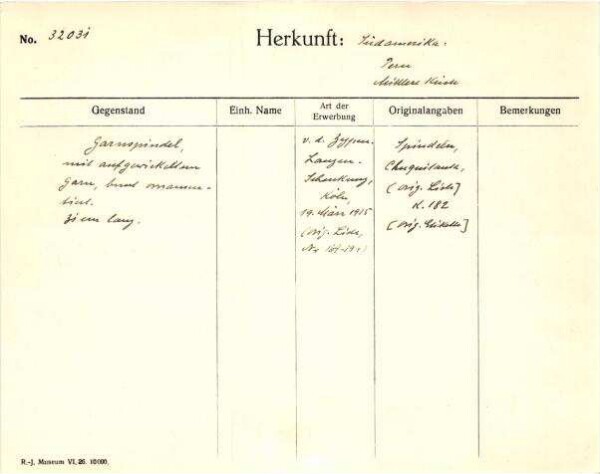 No. 32031
Herkunft: Südamerika.
Peru
Mittlere Küste
Gegenstand
Einh. Name
Art der
Erwerbung
Originalangaben
Bemerkungen
Garnspindel,
mit aufgewickeltem
Garn, bunt ornamen-
tiert.
31 cm lang.
v. d. Zypen-
Langen-
Schenkung,
Köln,
19. März 1915
(orig. Liste,
Nr
Spindeln,
[orig. Liste]
K. 182
[orig. Etikette]
R.-J. Museum VI. 26. 10000.